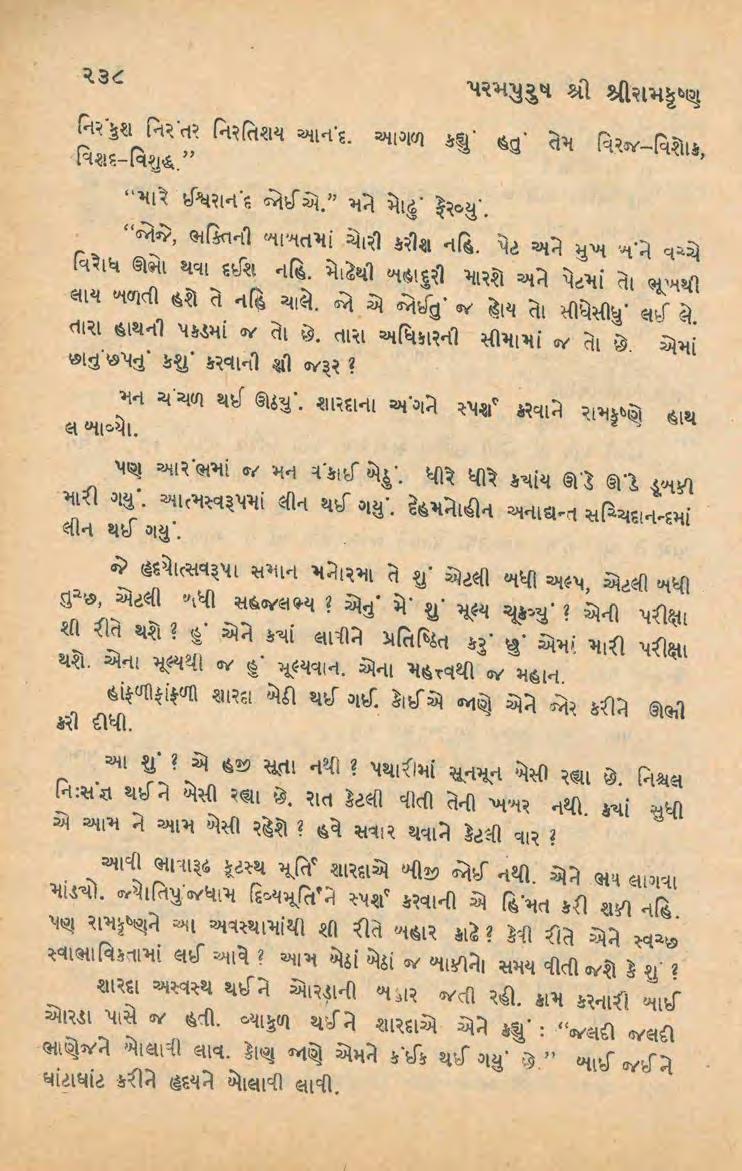 ૨૩૮
પરમપુરુષ શ્રી શ્રીરામકૃષ્ણ
નિરંકુશ નિરંતર નિરતિશય આનંદ. આગળ કહ્યું હતું તેમ વિરજ–વિશોક,
વિશદ–વિશુદ્ધ.”
“મારે ઈશ્વરાનંદ જોઈએ.” મને મોઢું ફેરવ્યું.
“જોજે, ભક્તિની બાબતમાં ચોરી કરીશ નહિ. પેટ અને મુખ બંને વચ્ચે
વિરોધ ઊભો થવા દઈશ નહિ. મોઢેથી બહાદુરી મારશે અને પેટમાં તો ભૂખથી
લાય બળતી હશે તે નહિ ચાલે. જો એ જોઈતું જ હોય તો સીધેસીધું લઈ લે.
તારા હાથની પકડમાં જ તો છે. તારા અધિકારની સીમામાં જ તો છે. એમાં
છાનુંછપનું કશું કરવાની શી જરૂર ?
મન ચંચળ થઈ ઊઠયું. શારદાના અંગને સ્પર્શ કરવાને રામકૃષ્ણે હાથ
લંબાવ્યો.
પણ આરંભમાં જ મન વંકાઈ બેઠું. ધીરે ધીરે કયાંય ઊંડે ઊંડે ડૂબકી
મારી ગયું. આત્મસ્વરૂપમાં લીન થઈ ગયું. દેહમનોહીન અનાદ્યન્ત સચ્ચિદાનન્દમાં
લીન થઈ ગયું.
જે હૃદયોત્સવરૂપા સમાન મનોરમા તે શું એટલી બધી અલ્પ, એટલી બધી
તુચ્છ, એટલી બધી સહજલભ્ય ? એનું મેં શું મૂલ્ય ચૂકવ્યું ? એની પરીક્ષા
શી રીતે થશે ? હું એને કયાં લાવીને પ્રતિષ્ઠિત કરું છું એમાં મારી પરીક્ષા
થશે. એના મૂલ્યથી જ હું મૂલ્યવાન. એના મહત્ત્વથી જ મહાન.
હાંફળીફાંફળી શારદા બેઠી થઈ ગઈ. કોઈએ જાણે એને જોર કરીને ઊભી
કરી દીધી.
આ શું ? એ હજી સૂતા નથી ? પથારીમાં સૂનમૂન બેસી રહ્યા છે. નિશ્ચલ
નિઃસંજ્ઞ થઈને બેસી રહ્યા છે. રાત કેટલી વીતી તેની ખબર નથી. કયાં સુધી
એ આમ ને આમ બેસી રહેશે ? હવે સવાર થવાને કેટલી વાર ?
આવી ભાવારૂઢ કૂટસ્થ મૂર્તિ શારદાએ બીજી જોઈ નથી. એને ભય લાગવા
માંડયો. જ્યોતિપુંજધામ દિવ્યમૂર્તિને સ્પર્શ કરવાની એ હિંમત કરી શકી નહિ.
પણ રામકૃષ્ણને આ અવસ્થામાંથી શી રીતે બહાર કાઢે ? કેવી રીતે એને સ્વચ્છ
સ્વાભાવિકતામાં લઈ આવે ? આમ બેઠાં બેઠાં જ બાકીનો સમય વીતી જશે કે શું ?
શારદા અસ્વસ્થ થઈને ઓરડાની બહાર જતી રહી. કામ કરનારી બાઈ
ઓરડા પાસે જ હતી. વ્યાકુળ થઈને શારદાએ એને કહ્યું : “જલદી જલદી
ભાણેજને બોલાવી લાવ. કોણ જાણે એમને કંઈક થઈ ગયું છે.” બાઈ જઈને
ઘાંટાઘાંટ કરીને હૃદયને બોલાવી લાવી.